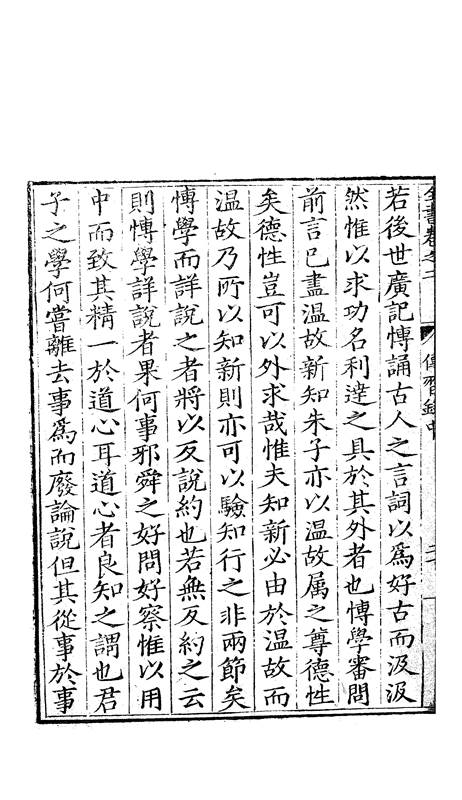 全書卷之二 傳習錄中 二十
若後世廣記愽誦古人之言詞以爲好古而汲汲
然惟以求功名利達之具於其外者也愽學審問
前言已盡温故新知朱子亦以温故属之尊德性
矣德性豈可以外求哉惟夫知新必由於温故而
温故乃所以知新則亦可以驗知行之非兩節矣
愽學而詳說之者將以反說約也若無反約之云
則愽學詳說者果何事邪舜之好問好察惟以用
中而致其精一於道心耳道心者良知之謂也君
子之學何嘗離去事爲而廢論說但其從事於事